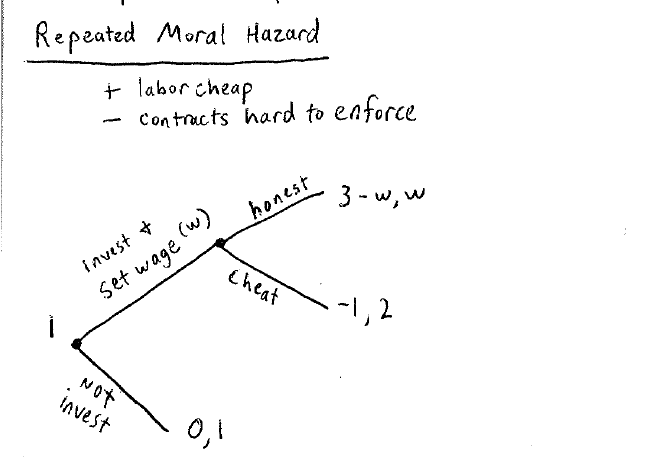 Repeated Moral Hazard
+ labor cheap
- contracts hard to enforce
honest
3 - w, w
invest &
set wage (w)
cheat
-1, 2
1
Not
invest
0, 1